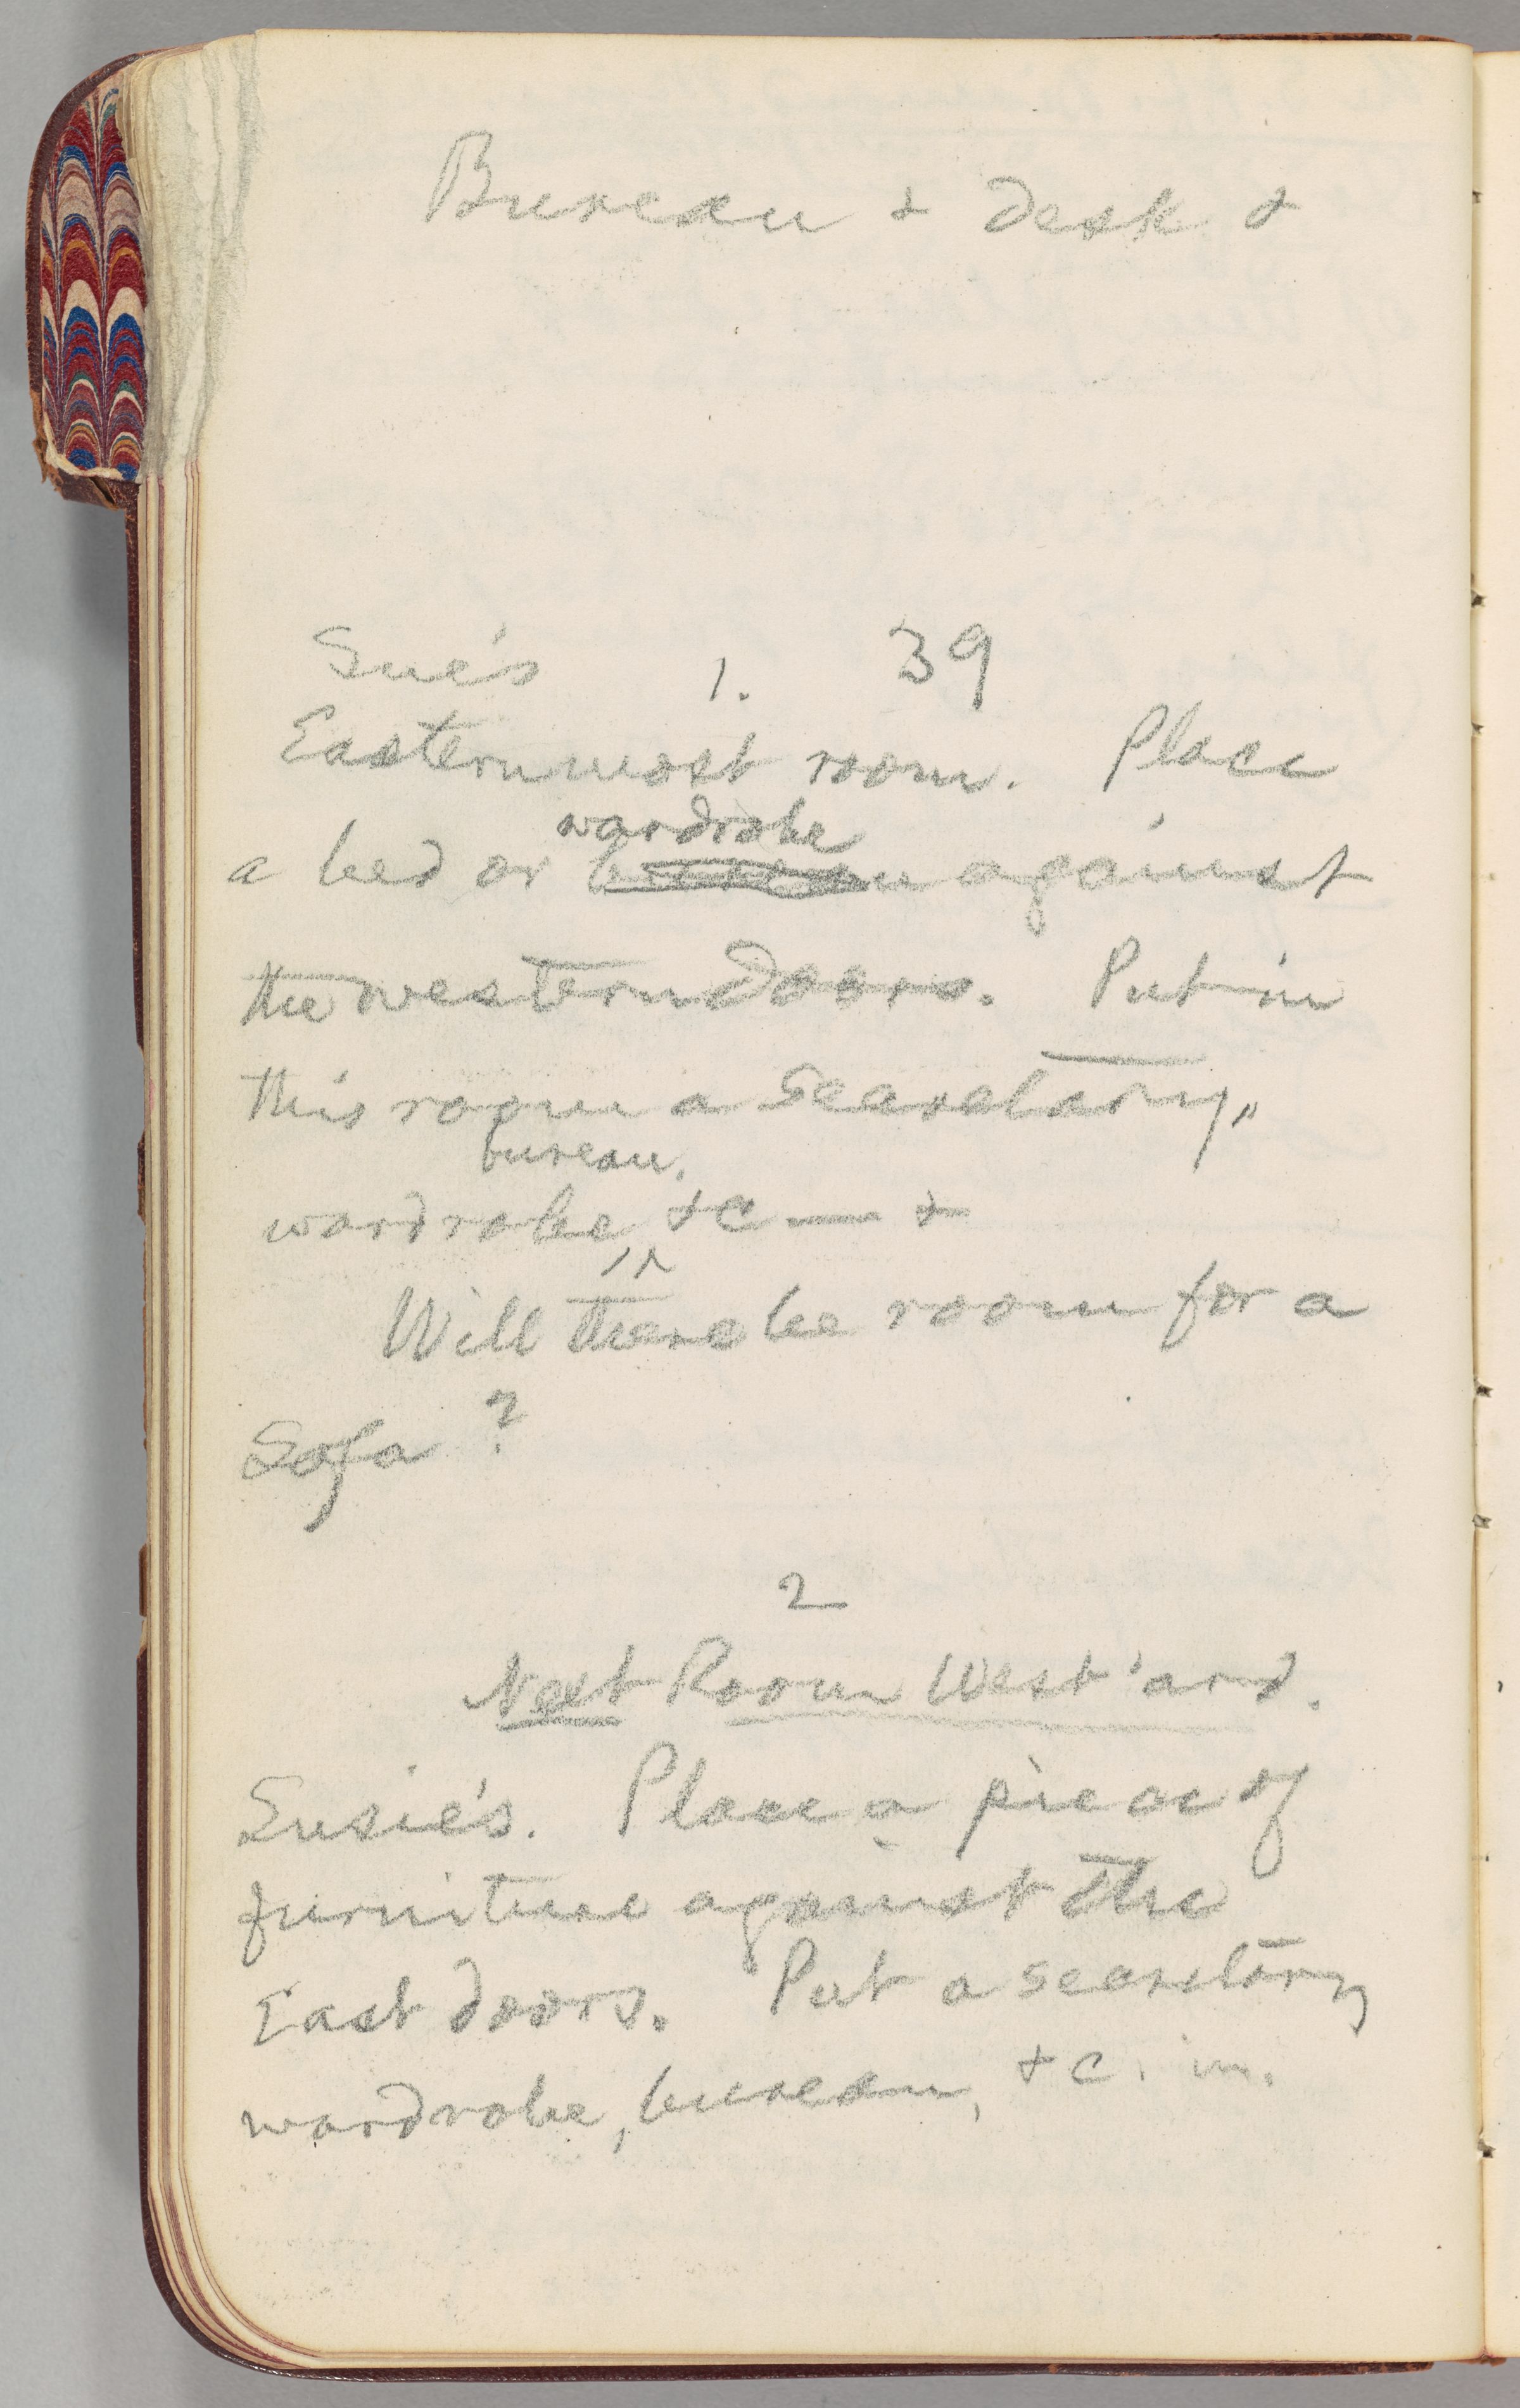 Bureau + desk +
Sue's 1. 39
Easternmost room. Place
wardrobe
a bed or bureau against
the western doors. Put in
this room a Secretary,
bureau,
wardrobe, +c — +
Will there be room for a
Sofa ?
2
Next Room West'ard.
Susie's. Place a piece of
furniture against the
East doors. Put a secretary
wardrobe, bureau, +c. in.